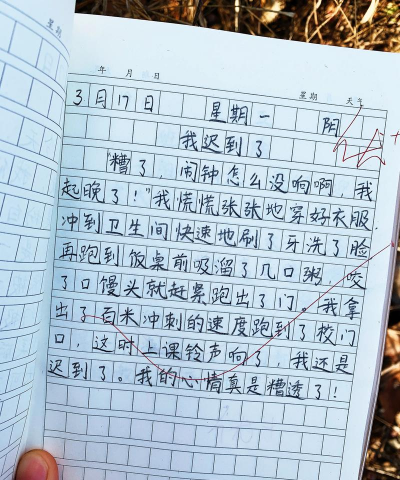 星期
年 月 日
星期 天气
3月17日 星期一 阴
我迟到了
"糟了,闹钟怎么没响啊,我
起晚了!"我慌慌张张地穿好衣服.
冲到卫生间快速地刷了牙洗了脸
再跑到饭桌前吸溜了几口粥,咬
了口馒头就赶紧跑出了门。我拿
出了百米冲刺的速度跑到了校门
口,这时上课铃声响了,我还是
迟到了。我的心情真是糟透了!